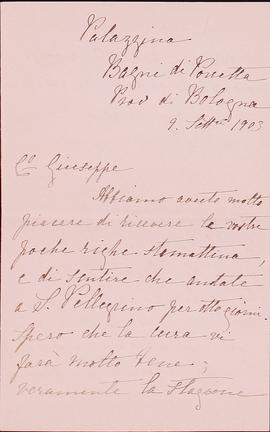 Palazzina
Bagni di Porretta
Prov di Bologna
9. Settre 1903
Co Giuseppe
Abbiamo avuto molto
piacere di ricevere le vostre
poche righe stamattina,
e di sentire che andate
a S. Pellegrino per otto giorni.
Spero che la cura vi
farà molto bene;
veramente la stagione